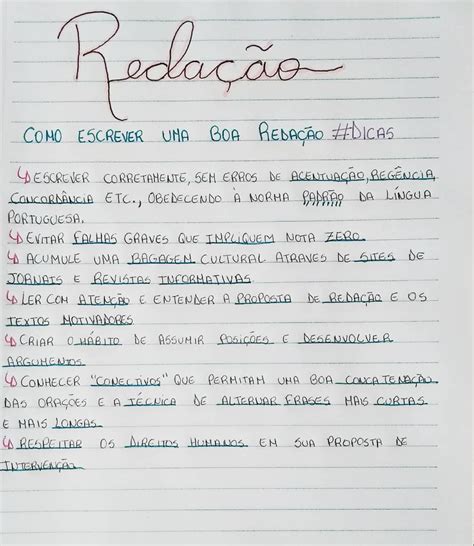 Redação
COMO ESCREVER UMA BOA REDAÇÃO #DICAS
↳ ESCREVER CORRETAMENTE, SEM ERROS DE ACENTUAÇÃO, REGÊNCIA,
CONCORDÂNCIA ETC., OBEDECENDO À NORMA PADRÃO DA LÍNGUA
PORTUGUESA.
↳ EVITAR FALHAS GRAVES QUE IMPLIQUEM NOTA ZERO.
↳ ACUMULE UMA BAGAGEM CULTURAL ATRAVES DE SITES DE
JORNAIS E REVISTAS INFORMATIVAS.
↳ LER COM ATENÇÃO E ENTENDER A PROPOSTA DE REDAÇÃO E OS
TEXTOS MOTIVADORES
↳ CRIAR O HÁBITO DE ASSUMIR POSIÇÕES E DESENVOLVER
ARGUMENTOS.
↳ CONHECER "CONECTIVOS" QUE PERMITAM UMA BOA CONCATENAÇÃO
DAS ORAÇÕES E A TÉCNICA DE ALTERNAR FRASES MAIS CURTAS
E MAIS LONGAS.
↳ RESPEITAR OS DIREITOS HUMANOS EM SUA PROPOSTA DE
INTERVENÇÃO.